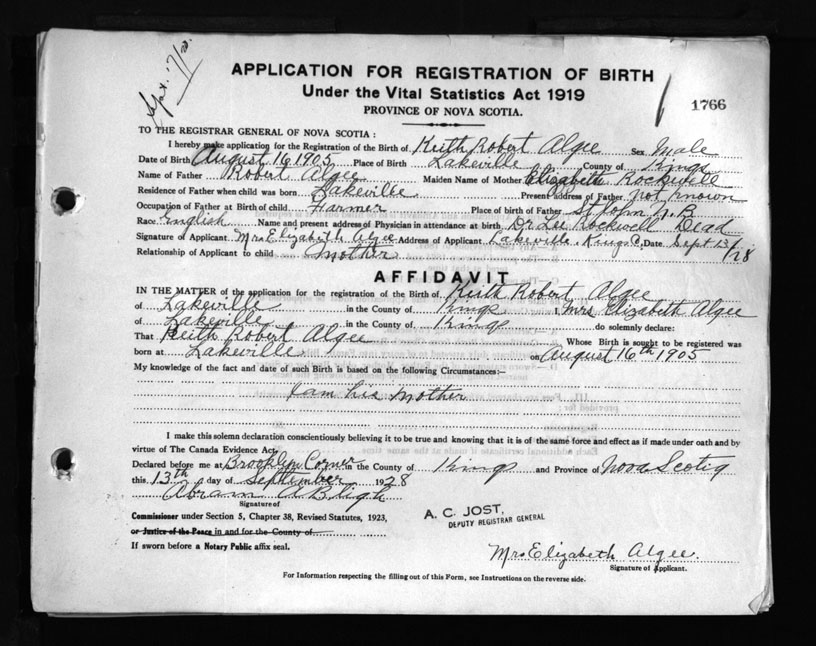 Sept. 17/28.
APPLICATION FOR REGISTRATION OF BIRTH
Under the Vital Statistics Act 1919
PROVINCE OF NOVA SCOTIA.
1766
TO THE REGISTRAR GENERAL OF NOVA SCOTIA :
I hereby make application for the Registration of the Birth of Keith Robert Algee Sex Male
Date of Birth August 16 1905 Place of Birth Lakeville County of Kings
Name of Father Robert Algee Maiden Name of Mother Elizabeth Rockwell
Residence of Father when child was born Lakeville Present address of Father Not known
Occupation of Father at Birth of child Farmer Place of birth of Father St John N.B
Race English Name and present address of Physician in attendance at birth Dr Lee Rockwell Dead
Signature of Applicant Mrs Elizabeth Algee Address of Applicant Lakeville Kings C. Date Sept 13/28
Relationship of Applicant to child Mother
AFFIDAVIT
IN THE MATTER of the application for the registration of the Birth of Keith Robert Algee
of Lakeville in the County of Kings I, Mrs Elizabeth Algee
of Lakeville in the County of Kings do solemnly declare:
That Keith Robert Algee Whose Birth is sought to be registered was
born at Lakeville on August 16th 1905
My knowledge of the fact and date of such Birth is based on the following Circumstances:—
I am his Mother
I make this solemn declaration conscientiously believing it to be true and knowing that it is of the same force and effect as if made under oath and by
virtue of The Canada Evidence Act.
Declared before me at Brooklyn Corner in the County of Kings and Province of Nova Scotia
this 13th day of September 1928
Abram A Bligh
Signature of
Commissioner under Section 5, Chapter 38, Revised Statutes, 1923,
or Justice of the Peace in and for the County of
If sworn before a Notary Public affix seal.
A. C. JOST,
DEPUTY REGISTRAR GENERAL
Mrs Elizabeth Algee.
Signature of Applicant.
For Information respecting the filling out of this Form, see Instructions on the reverse side.